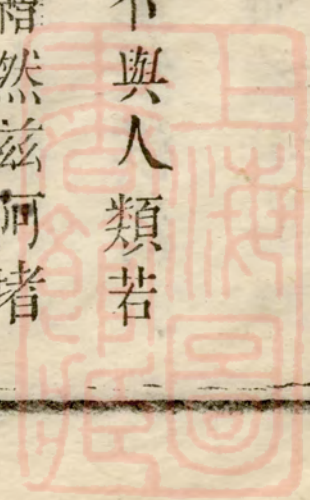 不與人類若
然茲何者
上海圖
書館藏